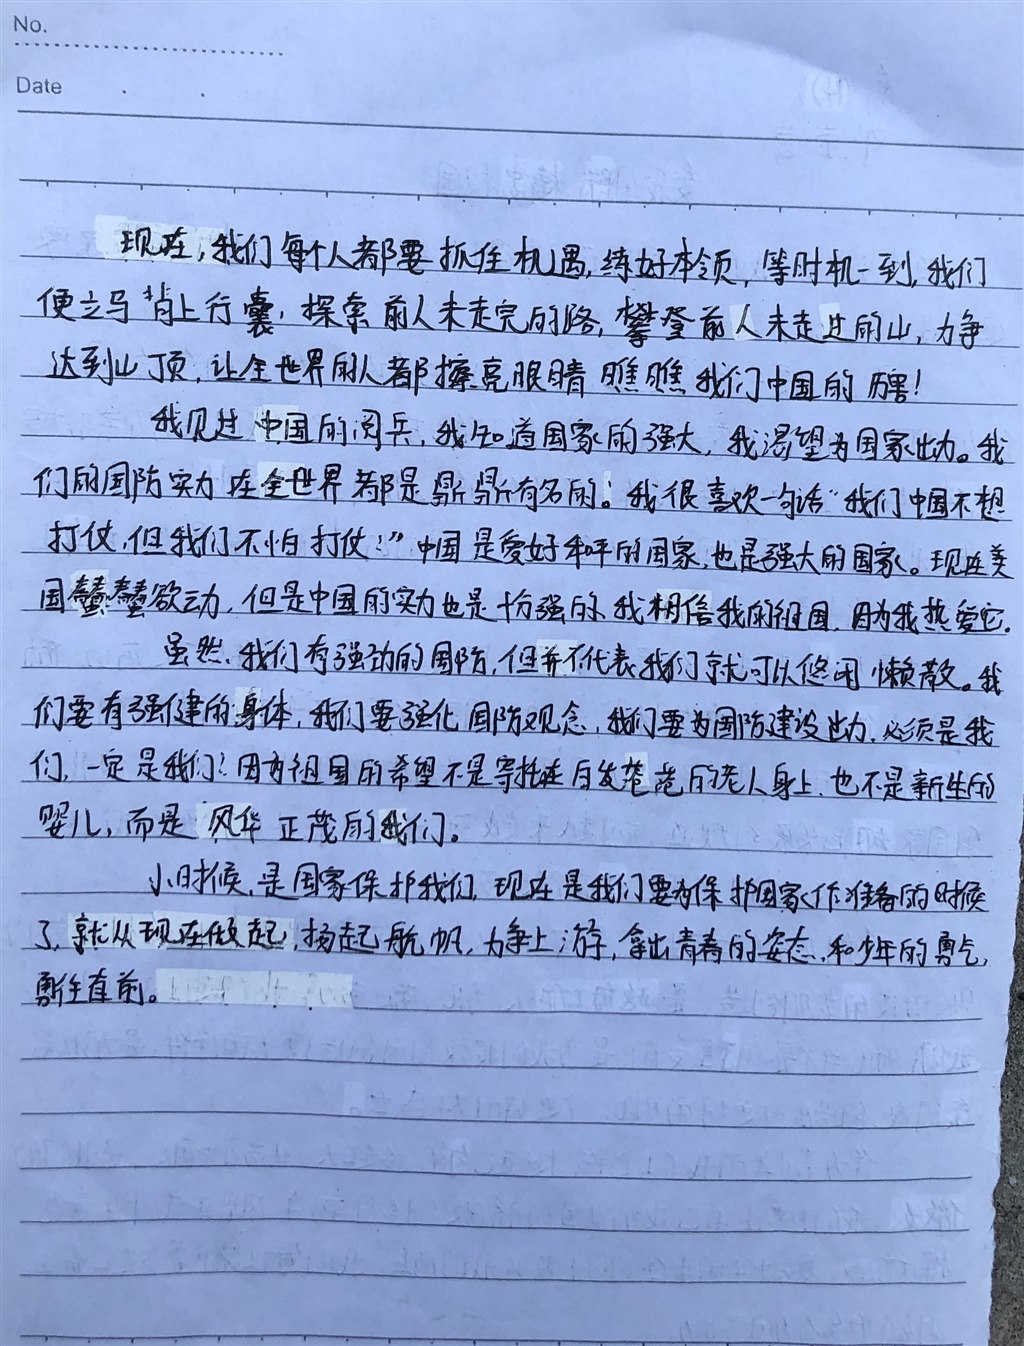 No.
Date
现在,我们每个人都要抓住机遇,练好本领,等时机一到,我们
便立马背上行囊,探索前人未走完的路,攀登前人未走过的山,力争
达到山顶,让全世界的人都擦亮眼睛瞧瞧我们中国的厉害!
我见过中国的阅兵,我知道国家的强大,我渴望为国家出力。我
们的国防实力在全世界都是鼎鼎有名的。我很喜欢一句话“我们中国不想
打仗,但我们不怕打仗!”中国是爱好和平的国家,也是强大的国家。现在美
国蠢蠢欲动,但是中国的实力也是十分强的,我相信我的祖国,因为我热爱它.
虽然,我们有强劲的国防,但并不代表我们就可以悠闲懒散。我
们要有强健的身体,我们要强化国防观念,我们要为国防建设出力,必须是我
们,一定是我们!因为祖国的希望不是寄托在白发苍苍的老人身上,也不是新生的
婴儿,而是风华正茂的我们。
小时候,是国家保护我们,现在是我们要为保护国家作准备的时候
了,就从现在做起,扬起航帆,力争上游,拿出青春的姿态,和少年的勇气,
勇往直前。